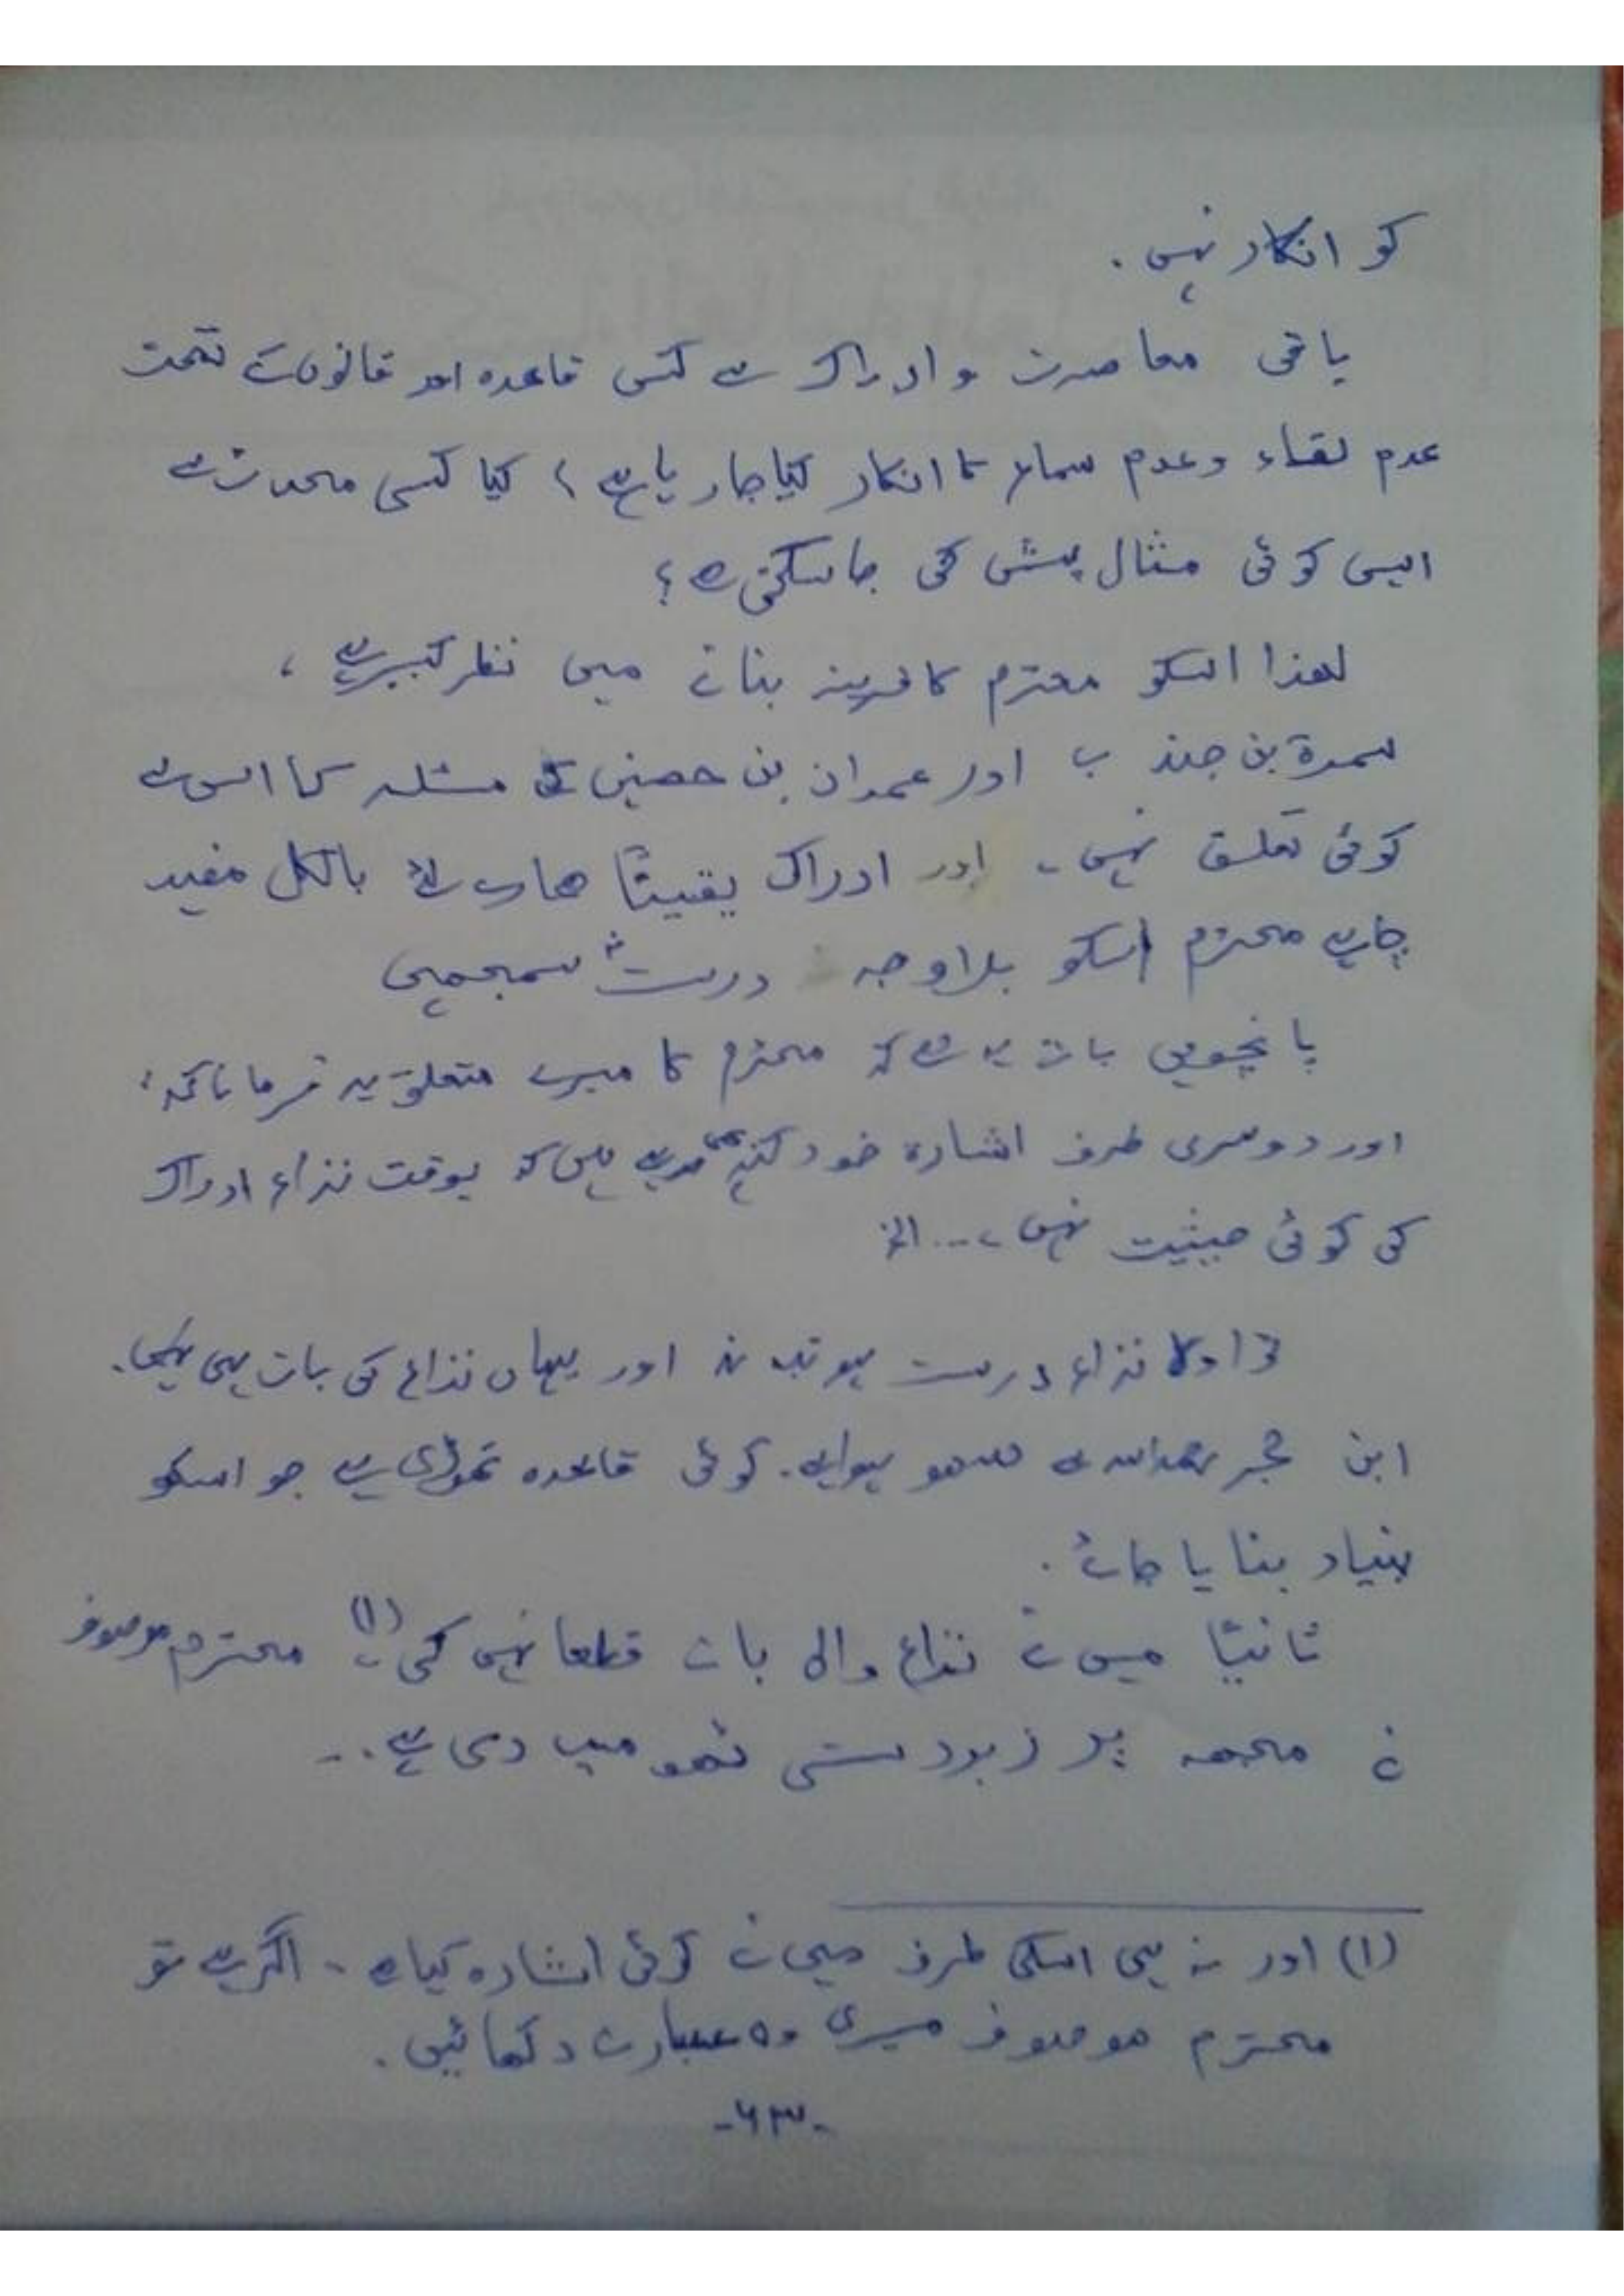 کو انکار نہیں۔
باقی معاصرت و ادراک سے کس قاعدہ اور قانون کے تحت
عدم لقاء وعدم سماع کا انکار کیا جا رہا ہے، کیا کسی محدث سے
ایسی کوئی مثال پیش کی جا سکتی ہے؟
لھذا اسکو محترم کا قرینہ بنانے میں نظر کبیر ہے،
سمرة بن جندب اور عمران بن حصین کے مسئلہ کا اس سے
کوئی تعلق نہیں۔ اور ادراک یقیناً ھمارے لئے بالکل مفید
چاہے محترم اسکو بلاوجہ درست نہ سمجھیں
پانچویں بات یہ ہے کہ محترم کا میرے متعلق یہ فرمانا کہ:
اور دوسری طرف اشارہ خود کر بھی رہے ہیں کہ بوقت نزاع ادراک
کی کوئی حیثیت نہیں،... الخ
تو اولا نزاع درست ہو تب نہ اور یہاں نزاع کی بات ہی نہیں.
ابن حجر رحمہ اللہ سے سھو ہوا ہے. کوئی قاعدہ تھوڑی ہے جو اسکو
بنیاد بنایا جائے.
ثانیًا میں نے نزاع والی بات قطعا نہیں کی(١)، محترم موصوف
نے مجھ پر زبردستی تھوپ دی ہے...
(١) اور نہ ہی اسکی طرف میں نے کوئی اشارہ کیا ہے - اگر ہے تو
محترم موصوف میری وہ عبارت دکھائیں.
-٦٣-